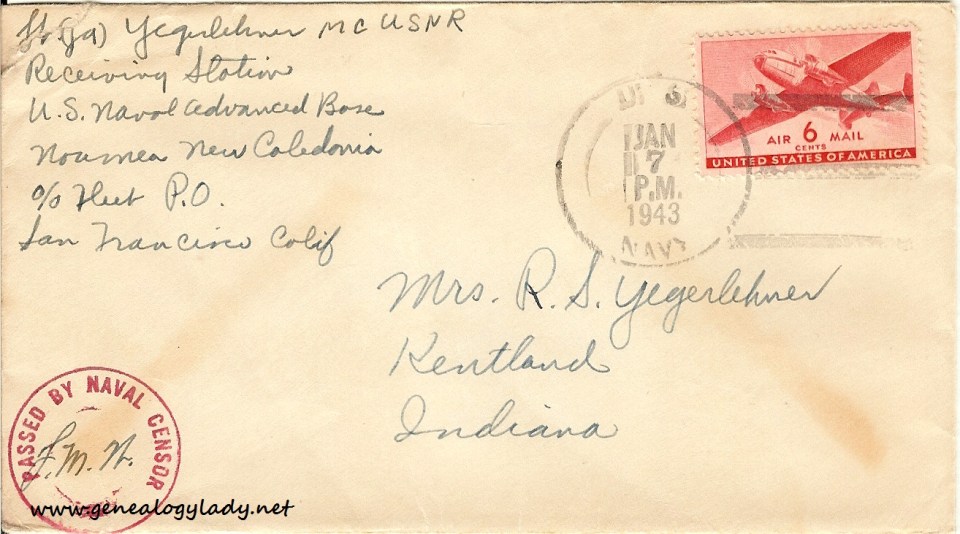 Lt. (jg) Yegerlehner MC USNR
Receiving Station
U.S. Naval Advanced Base
Noumea New Caledonia
c/o Fleet P.O.
San Francisco Calif
JAN
7
P.M.
1943
NAVY
AIR 6 MAIL
CENTS
UNITED STATES OF AMERICA
Mrs. R. S. Yegerlehner
Kentland
Indiana
PASSED BY NAVAL CENSOR
www.genealogylady.net